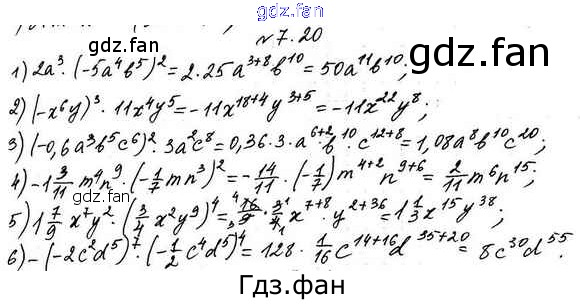 gdz.fan
№7.20
gdz.fan
1) 2a³·(-5a⁴b⁵)²=2·25a³⁺⁸b¹⁰=50a¹¹b¹⁰;
2) (-x⁶y)³·11x⁴y⁵=-11x¹⁸⁺⁴y³⁺⁵=-11x²²y⁸;
3) (-0,6a³b⁵c⁶)²·3a²c⁸=0,36·3·a⁶⁺²b¹⁰·c¹²⁺⁸=1,08a⁸b¹⁰c²⁰;
4) -1 3/11 m⁴n⁹·(-1/7 mn³)²=-14/11·(-1/7)m⁴⁺²n⁹⁺⁶=2/11 m⁶n¹⁵;
5) 1 7/9 x⁷y²·(3/4 x²y⁹)⁴=16/9·3/4 x⁷⁺⁸·y²⁺³⁶=1 1/3 x¹⁵y³⁸;
6) -(-2c²d⁵)⁷·(-1/2 c⁴d⁵)⁴=128·1/16 c¹⁴⁺¹⁶d³⁵⁺²⁰=8c³⁰d⁵⁵.
Гдз.фан